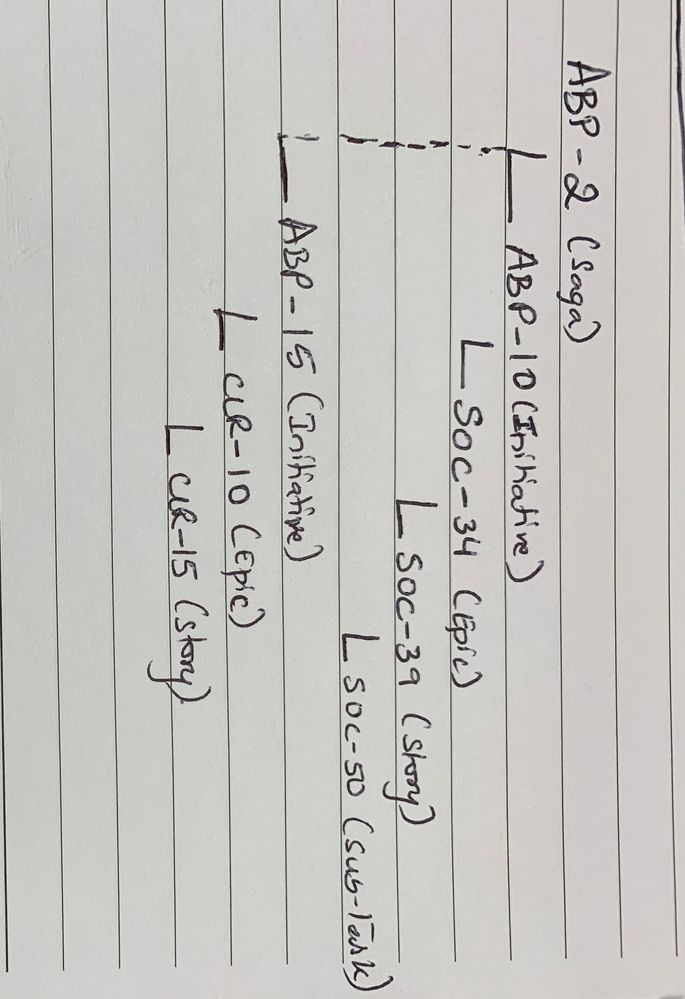 ABP-2 (Saga)
ABP-10 (Initiative)
SOC-34 (Epic)
SOC-39 (Story)
SOC-50 (Sub-Task)
ABP-15 (Initiative)
CLR-10 (Epic)
CLR-15 (Story)